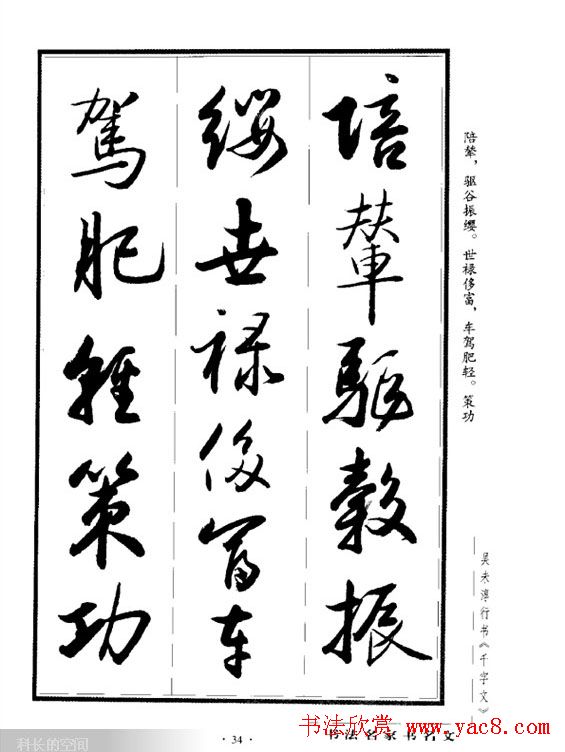 陪辇，驱谷振缨。世禄侈富，车驾肥轻。策功
陪輦驅轂振
纓世祿侈富车
駕肥輕策功
吴未淳行书《千字文》
· 34 ·
书法名家书名文
书法欣赏 www.yac8.com
科长的空间